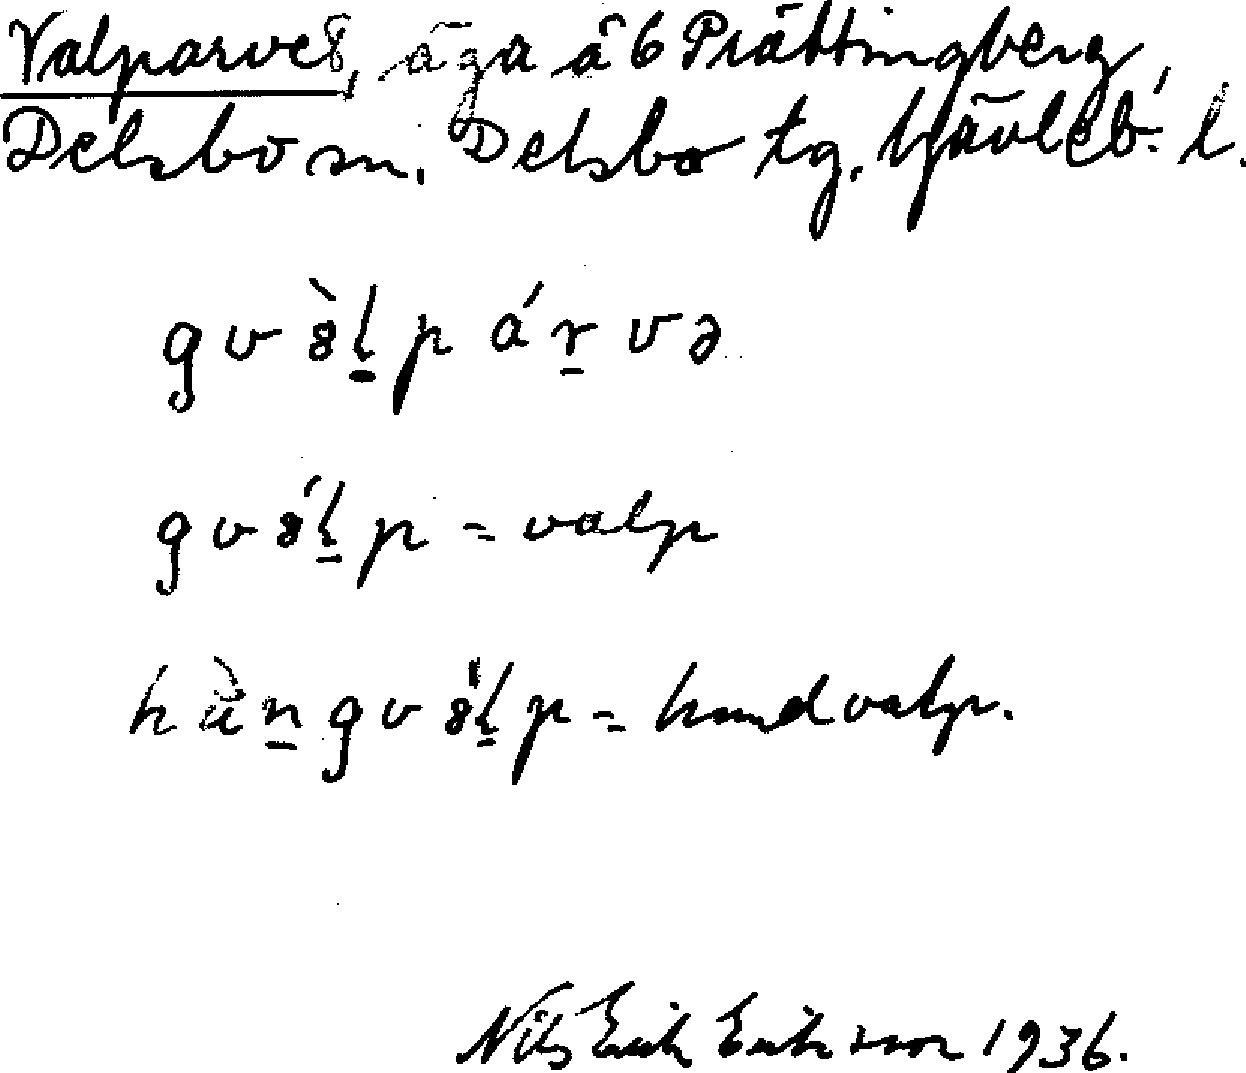 Valparvet, äga å 6 Prästtingberg,
Delsbo sn. Delsbo tg. Gävleb. l.
gv òl̠p ár̠və
gv ól̠p = valp
hùn̠gv ól̠p = hundvalp.
Nils Erik Eriksson 1936.